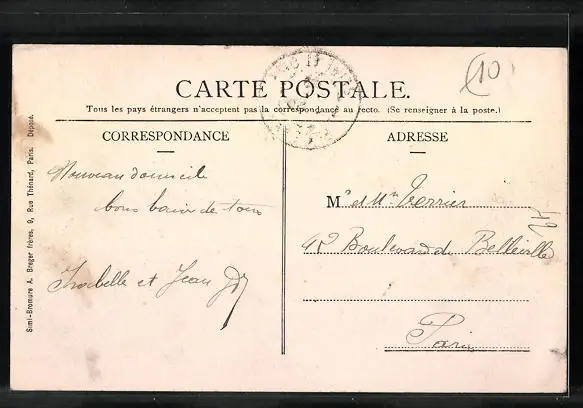 (10)
CARTE POSTALE.
Tous les pays étrangers n'acceptent pas la correspondance au recto. (Se renseigner à la poste.)
CORRESPONDANCE
ADRESSE
Nouveau domicile
bons baisers de tous
Isabelle et Jean
Mr et Mme Verrier
42 Boulevard de Belleville
Paris
Simi-Bromure A. Breger frères, 9, Rue Thénard, Paris. Déposé.